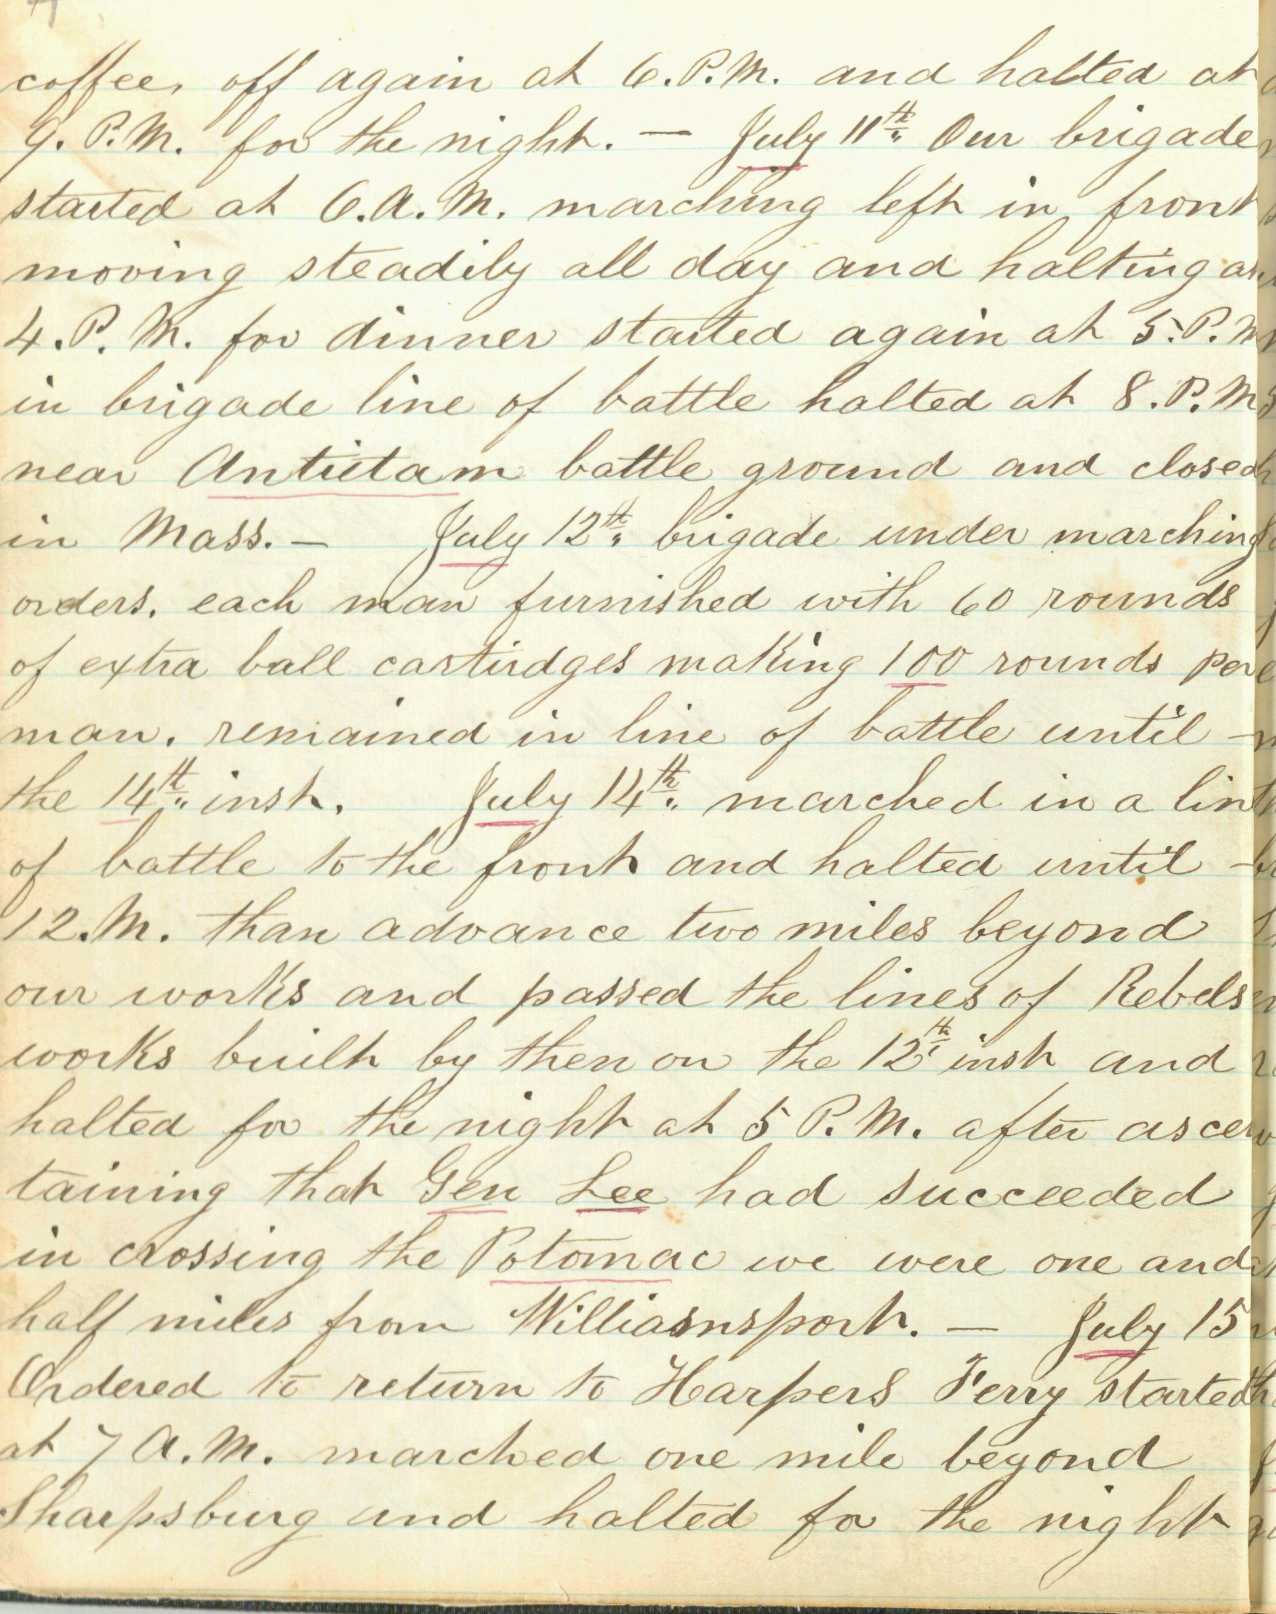 coffee, off again at 6.P.M. and halted at
9. P.M. for the night. — July 11th Our brigade
started at 6.A.M. marching left in front
moving steadily all day and halting at
4.P.M. for dinner started again at 5.P.M
in brigade line of battle halted at 8.P.M
near Antietam battle ground and closed
in Mass. — July 12th brigade under marching
orders. each man furnished with 60 rounds
of extra ball castirdges making 100 rounds per
man. remained in line of battle until —
the 14th inst. July 14th marched in a line
of battle to the front and halted until —
12.M. than advance two miles beyond
our works and passed the lines of Rebels
works built by then on the 12th inst and
halted for the night at 5 P.M. after ascer
taining that Gen Lee had succeeded
in crossing the Potomac we were one and
half miles from Williasnsport. — July 15
Ordered to return to Harpers Ferry started
at 7 A.M. marched one mile beyond
Sharpsburg and halted for the night